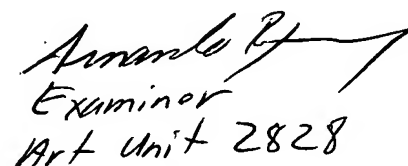 Armando
Examiner
Art Unit 2828